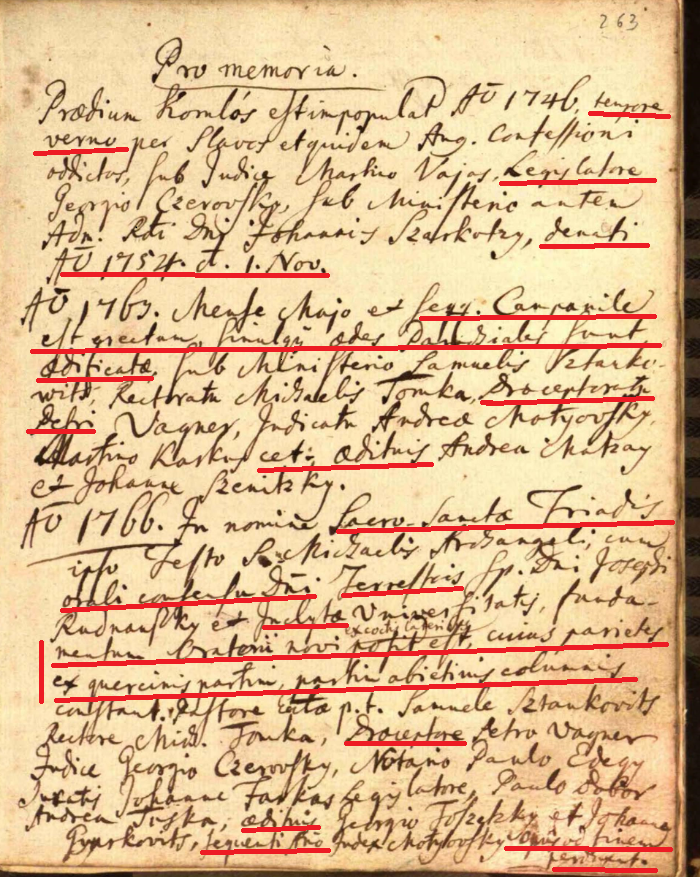 263
Pro memoria.
Prædium Komlós est impopulat Aō 1746. tempore
verno per Slavos et quidem Aug. Confessioni
addictos, sub Judice Martino Vajas, Legislatore
Georgio Czerovsky, sub Ministerio autem
Adm. Rdi Dni Johannis Szarkotzy, denati
Aō 1754. d. 1. Nov.
Aō 1763. Mense Majo et seqq. Campanile
est erectum, simulqz ædes Parochiales sunt
ædificatæ, sub Ministerio Samuelis Sztanko-
wits, Rectoratu Michaelis Tomka, Præceptoratu
Petri Vagner, Judicatu Andreæ Motyovsky,
Martino Karkus cet: ædituis Andrea Matzay
et Johanne Szenitzky.
Aō 1766. In nomine Sacro-Sanctæ Triadis
ipso Festo S. Michaelis Archangeli, cum
orali consensu Dni Terrestris Sp. Dni Josephi
Rudnansky et Inclytæ Universitatis, funda-
ex coctis lateribus
mentum Oratorii novi posit est, cuius parietes
ex quercinis partim, partim abietinis columnis
constant. Pastore Ecclæ p.t. Samuele Sztankovits
Rectore Mich. Tomka, Præceptore Petro Vagner
Judice Georgio Czerovsky, Notario Paulo Edegy
Juratis Johanne Farkas Legislatore, Paulo Dobor
Andrea Tuska, ædituis Georgio et Johanne
Gyurkovits, sequenti Año Judex Motyovsky opus ad finem
perducit.